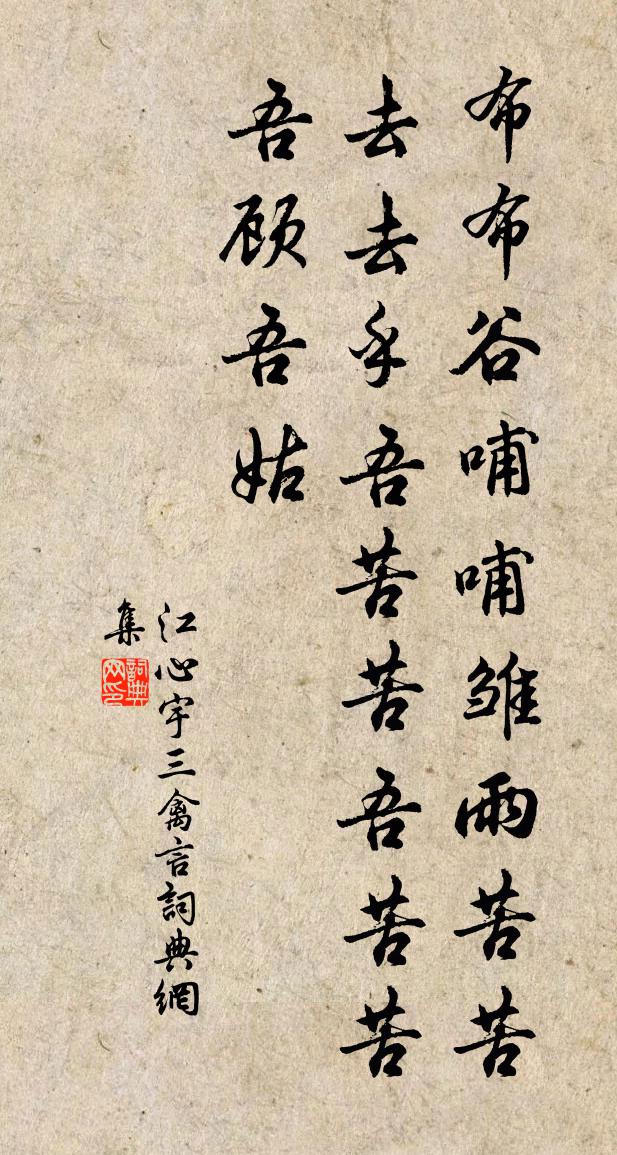 布布谷哺哺雛雨苦苦
去去乎吾苦苦吾苦苦
吾顾吾姑
江心宇三禽言詞典網
集
詞典
网印